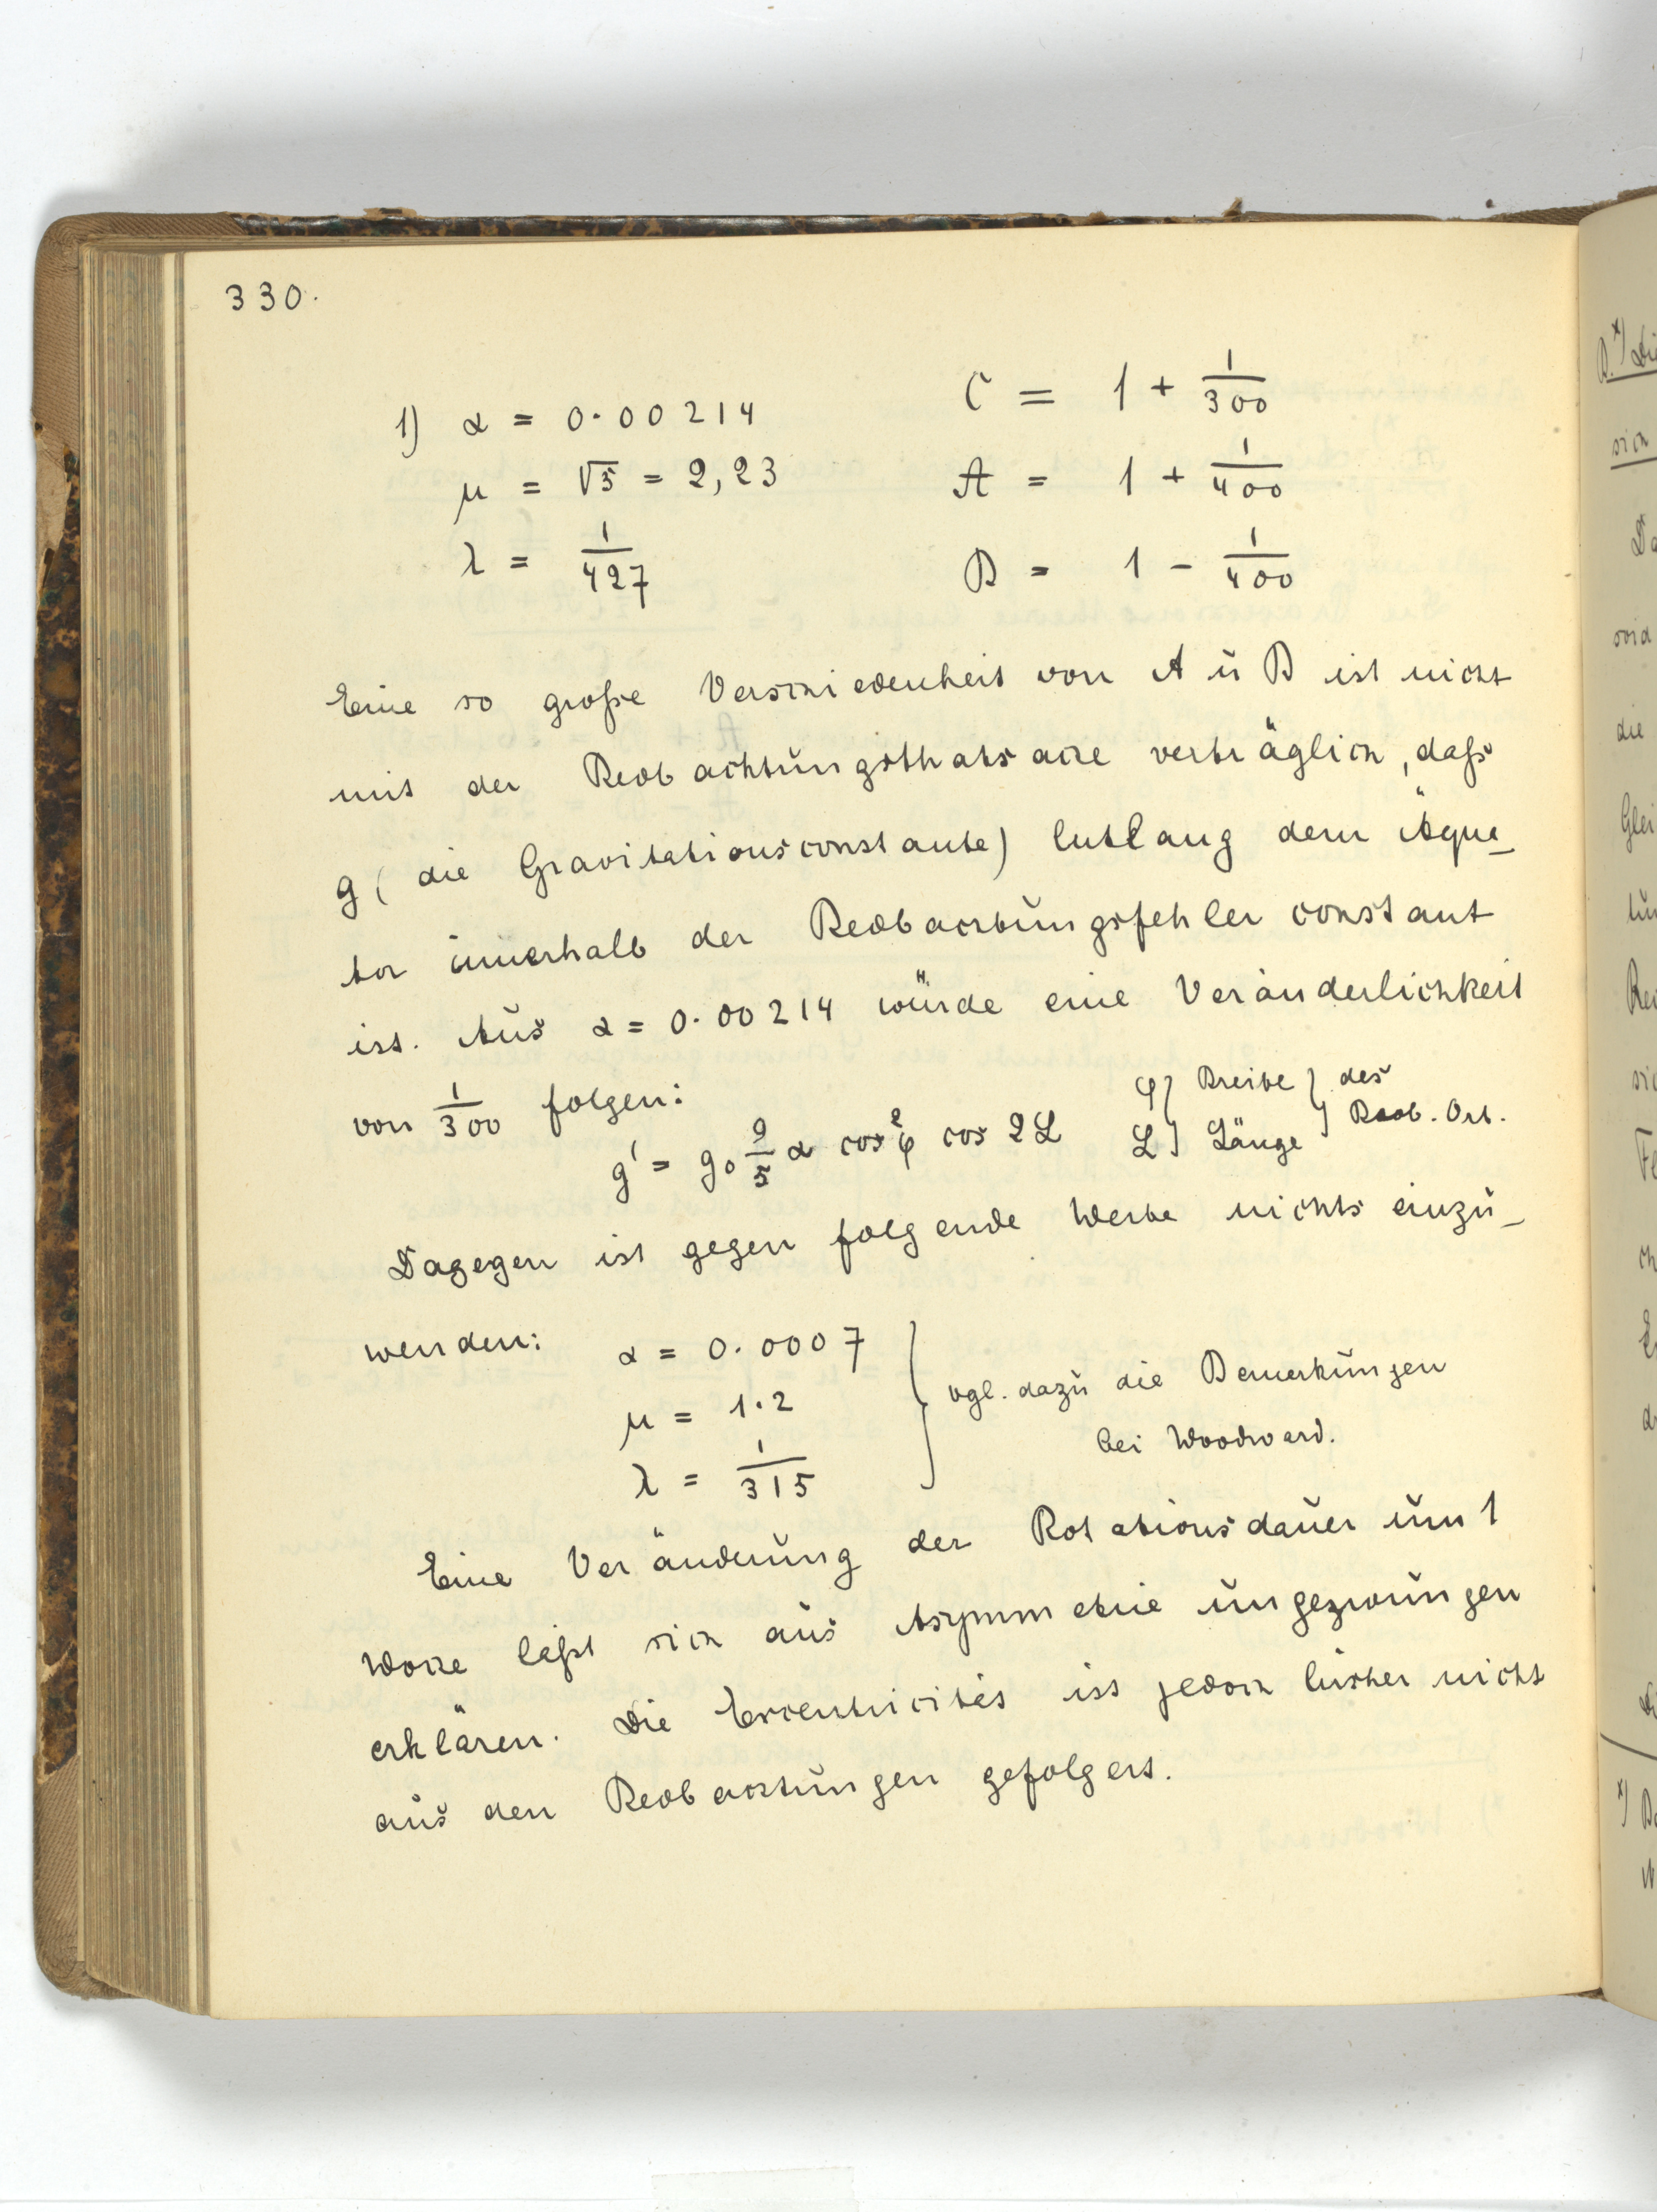 330.
1) α = 0.00214 C = 1 + 1/300
μ = √5 = 2,23 A = 1 + 1/400
λ = 1/427 B = 1 - 1/400
Eine so große Verschiedenheit von A u B ist nicht
mit der Beobachtungsthatsache verträglich, daß
g (die Gravitationsconstante) entlang dem Äqua-
tor innerhalb der Beobachtungsfehler constant
ist. Aus α = 0.00214 würde eine Veränderlichkeit
von 1/300 folgen:
φ} Breite } des
L} Länge } Beob. Ort.
g' = g₀ 9/5 α cos²φ cos 2L
Dagegen ist gegen folgende Werte nichts einzu-
wenden: α = 0.0007
μ = 1.2
λ = 1/315
} vgl. dazu die Bemerkungen
bei Woodward.
Eine Veränderung der Rotationsdauer um 1
Woche läßt sich aus Asymmetrie ungezwungen
erklären. Die Excentricität ist jedoch bisher nicht
aus den Beobachtungen gefolgert.
die